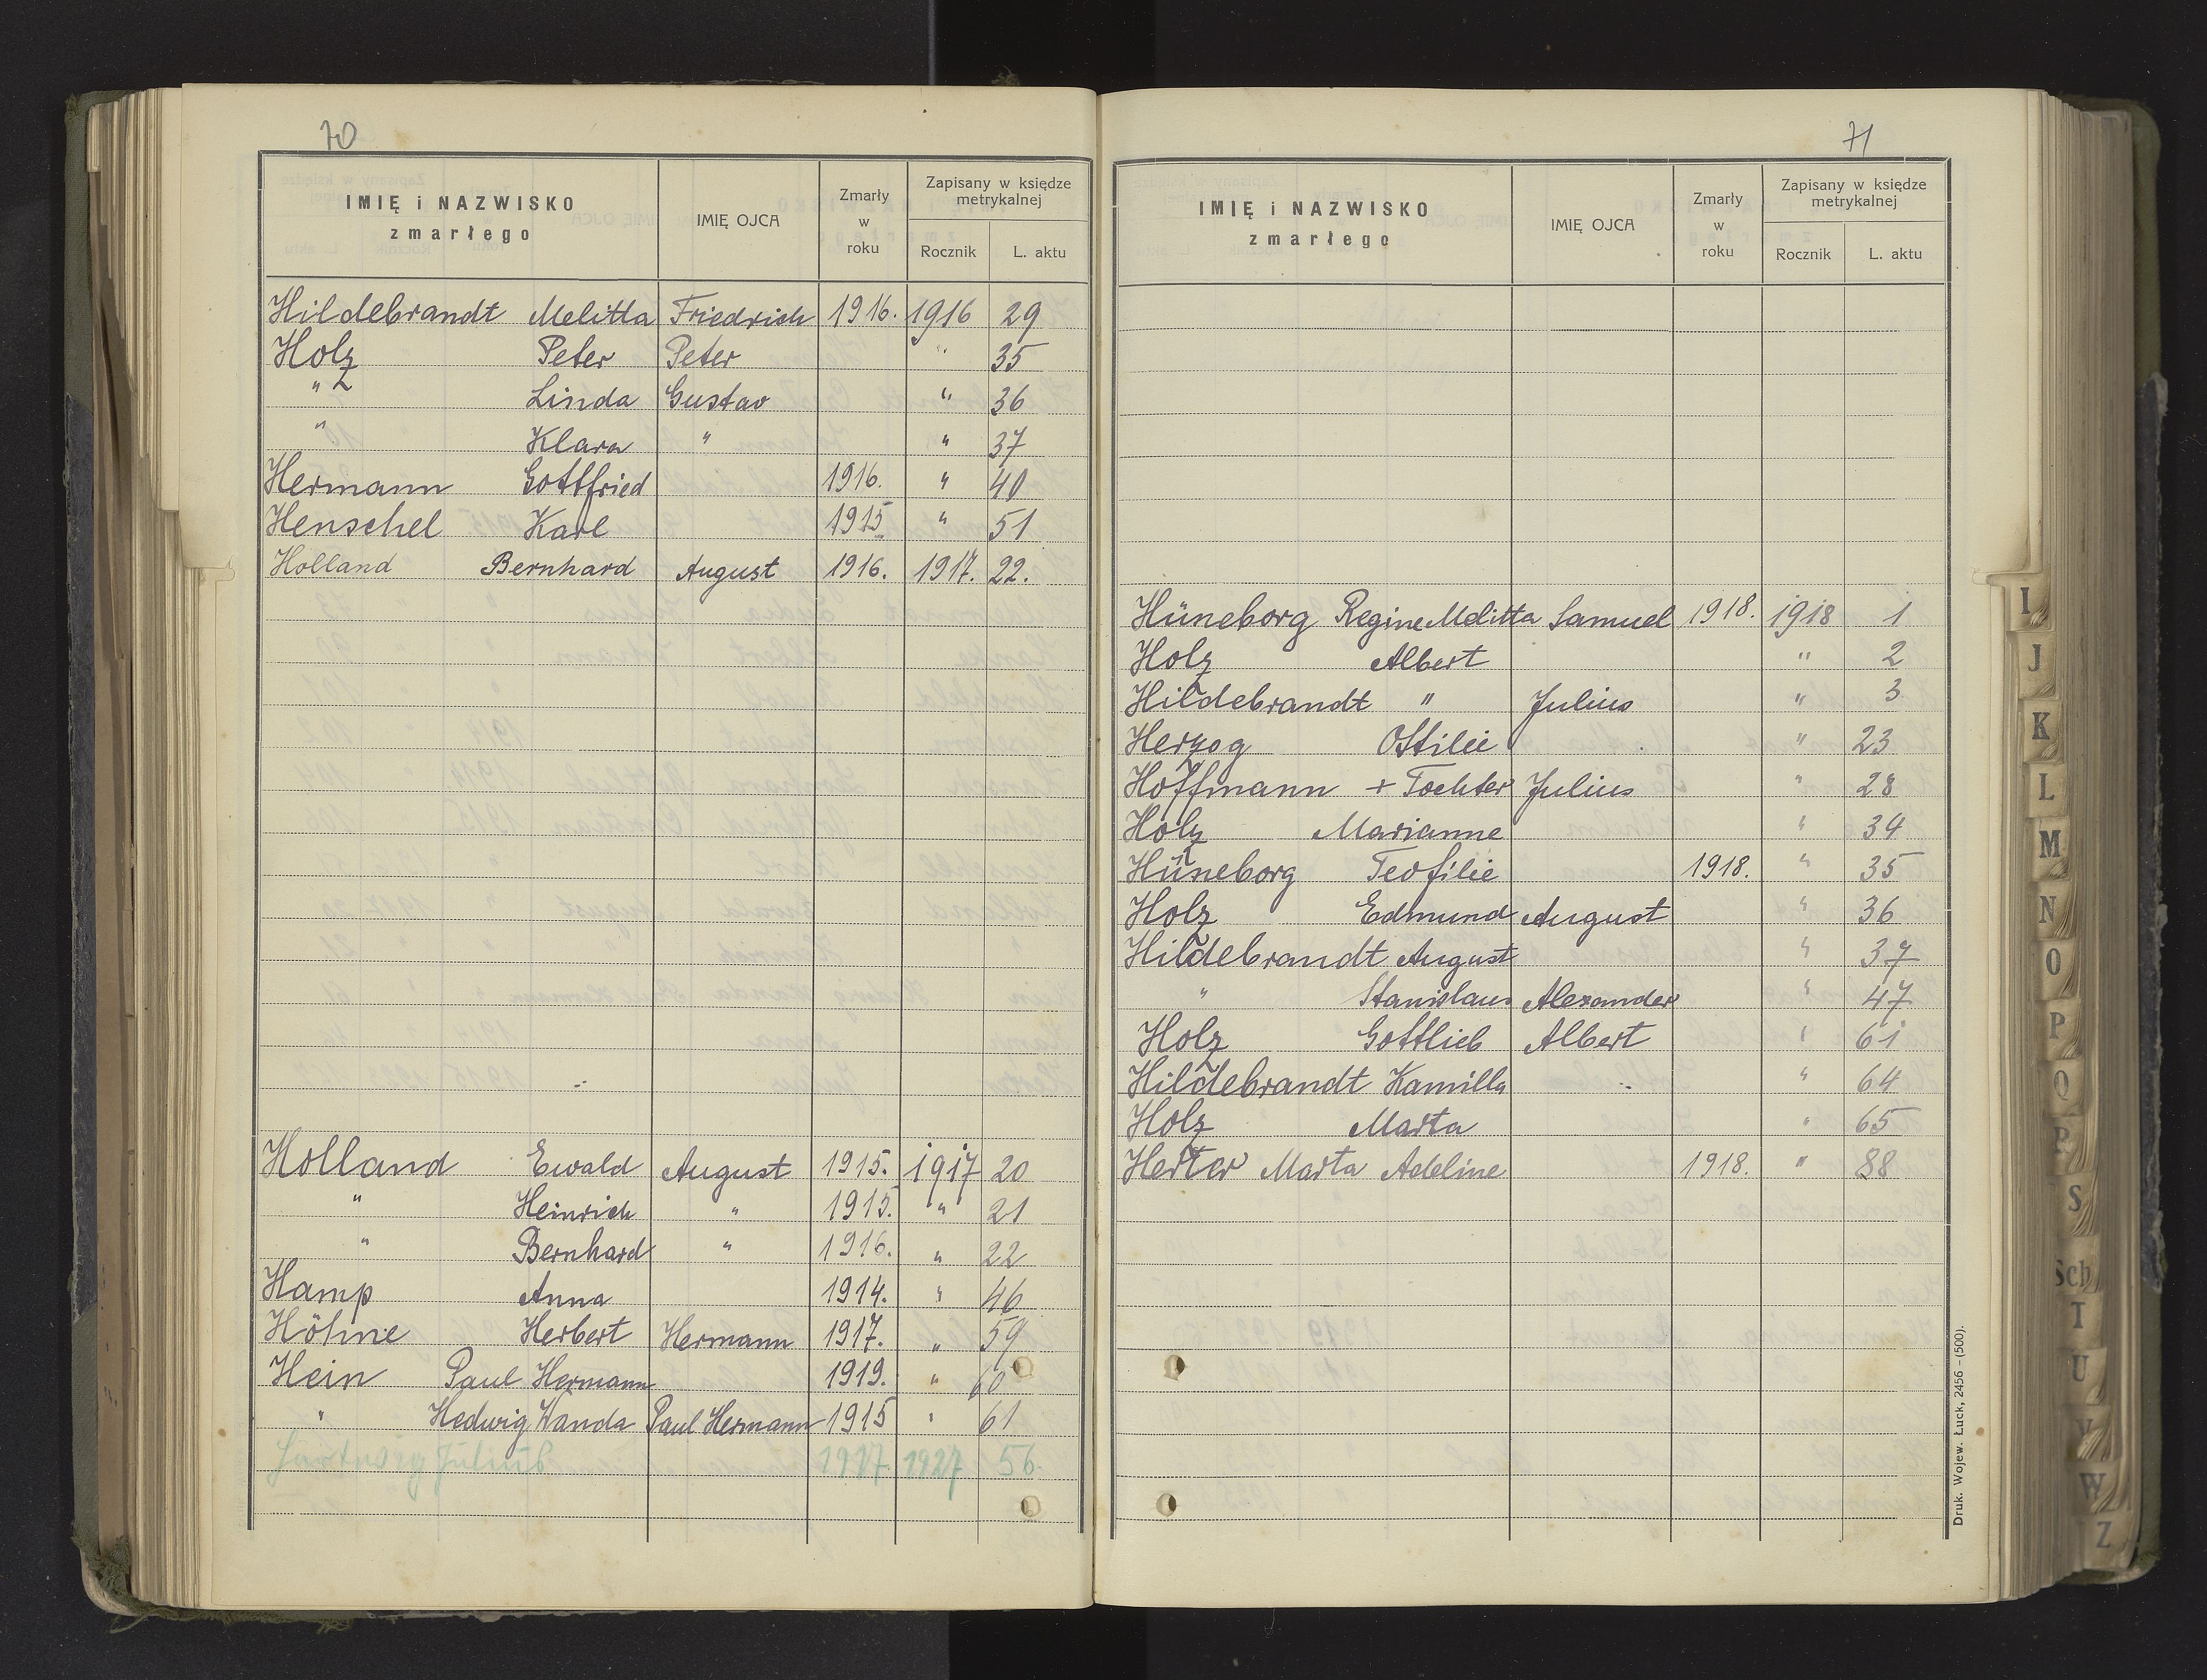 70
IMIĘ i NAZWISKO zmarłego IMIĘ OJCA Zmarły w roku Zapisany w księdze metrykalnej Rocznik L. aktu
Hildebrandt Melitta Friedrich 1916. 1916 29
Holz Peter Peter " 35
" Linda Gustav " 36
" Klara " " 37
Hermann Gottfried 1916. " 40
Henschel Karl 1915 " 51
Holland Bernhard August 1916. 1917. 22.
Holland Ewald August 1915. 1917 20
" Heinrich " 1915. " 21
" Bernhard " 1916. " 22
Hamp Anna 1914. " 46
Höhne Herbert Hermann 1917. " 59
Hein Paul Hermann 1919. " 60
" Hedwig Wanda Paul Hermann 1915 " 61
Hartwig Julius 1927 56.
71
IMIĘ i NAZWISKO zmarłego IMIĘ OJCA Zmarły w roku Zapisany w księdze metrykalnej Rocznik L. aktu
Hüneborg Regine Melitta Samuel 1918. 1918 1
Holz Albert " 2
Hildebrandt " Julius " 3
Herzog Ottilie " 23
Hoffmann + Tochter Julius " 28
Holz Marianne " 34
Hüneborg Teofilie 1918. " 35
Holz Edmund August " 36
Hildebrandt August " 37
" Stanislaus Alexander " 47
Holz Gottlieb Albert " 61
Hildebrandt Kamilla " 64
Holz Marta " 65
Herter Marta Adeline 1918. " 88
Druk. Wojew. Łuck, 2456 – (500).
I
J
K
L
M
N
O
P
Q
R
S
Sch
T
U
V
W
Z